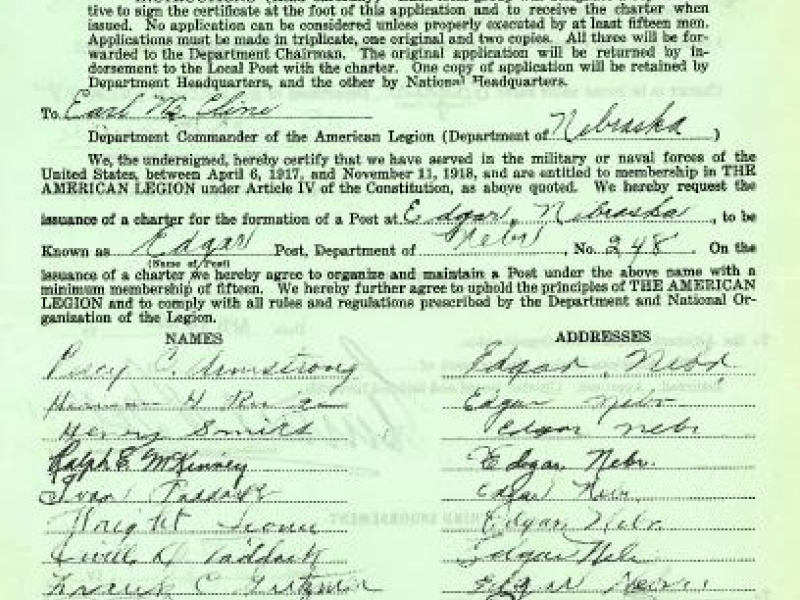 tive to sign the certificate at the foot of this application and to receive the charter when
issued. No application can be considered unless properly executed by at least fifteen men.
Applications must be made in triplicate, one original and two copies. All three will be for-
warded to the Department Chairman. The original application will be returned by in-
dorsement to the Local Post with the charter. One copy of application will be retained by
Department Headquarters, and the other by National Headquarters.
To Earl M. Cline
Department Commander of the American Legion (Department of Nebraska )
We, the undersigned, hereby certify that we have served in the military or naval forces of the
United States, between April 6, 1917, and November 11, 1918, and are entitled to membership in THE
AMERICAN LEGION under Article IV of the Constitution, as above quoted. We hereby request the
issuance of a charter for the formation of a Post at Edgar, Nebraska, to be
Known as Edgar Post, Department of Nebr, No. 248. On the
(Name of Post)
issuance of a charter we hereby agree to organize and maintain a Post under the above name with a
minimum membership of fifteen. We hereby further agree to uphold the principles of THE AMERICAN
LEGION and to comply with all rules and regulations prescribed by the Department and National Or-
ganization of the Legion.
NAMES ADDRESSES
Percy C. Armstrong Edgar, Nebr
Herman H Edgar Nebr
Henry Smith Edgar Nebr
Ralph E. McKinney Edgar, Nebr.
Ivan Paddock Edgar Nebr.
Wright Edgar Nebr.
D Paddock Edgar Nebr
C. Edgar